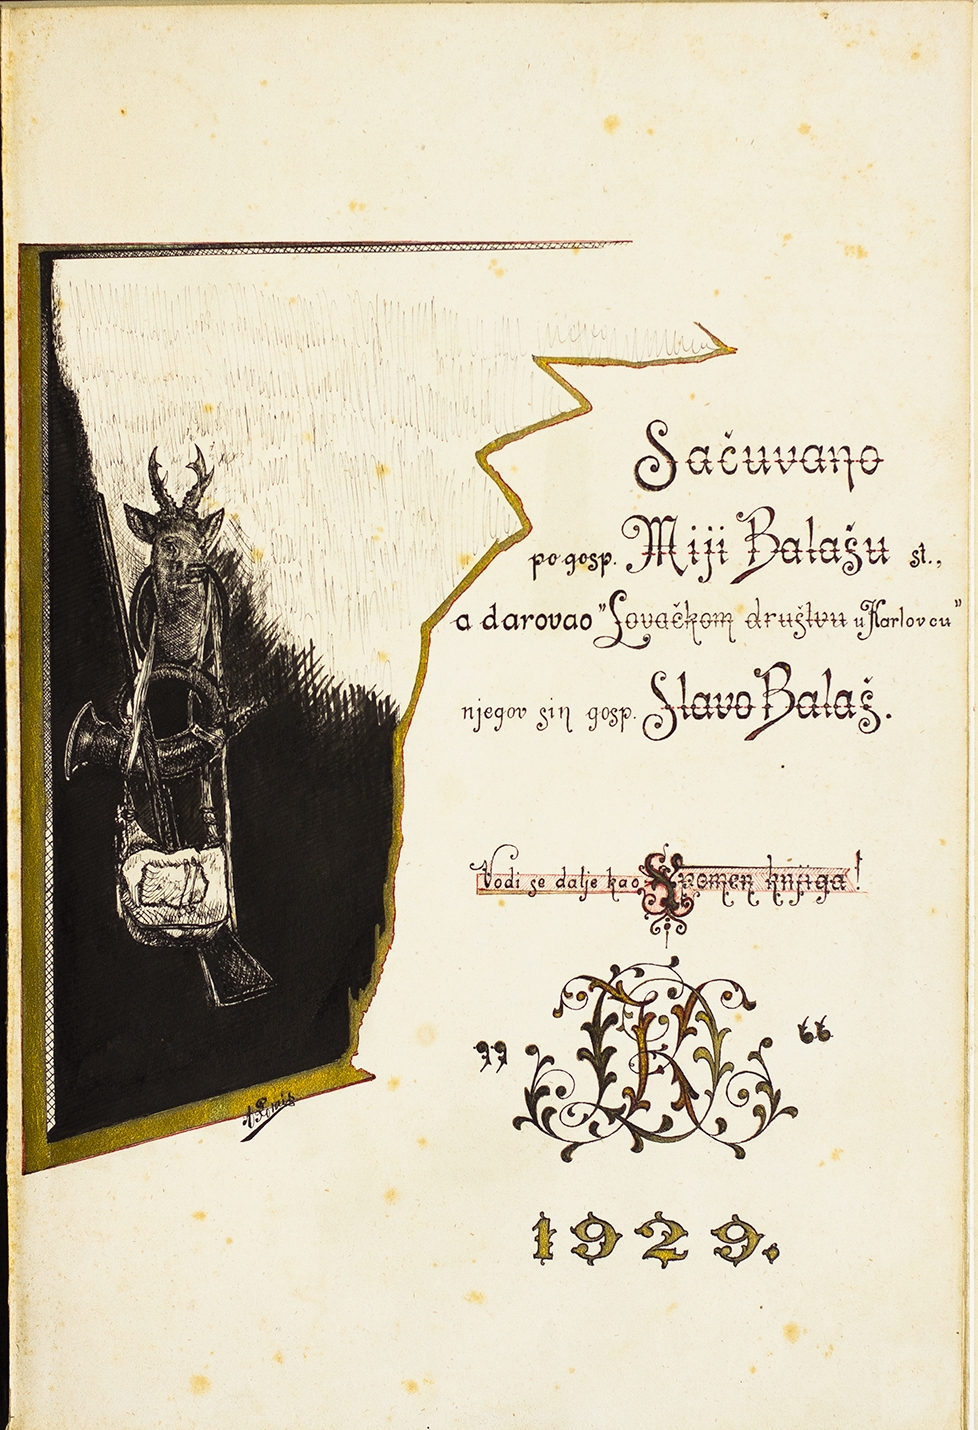 Sačuvano
po gosp. Miji Balašu st.,
a darovao "Lovačkom društvu u Karlovcu"
njegov sin gosp. Slavo Balaš.
Vodi se dalje kao Spomen knjiga!
1929.